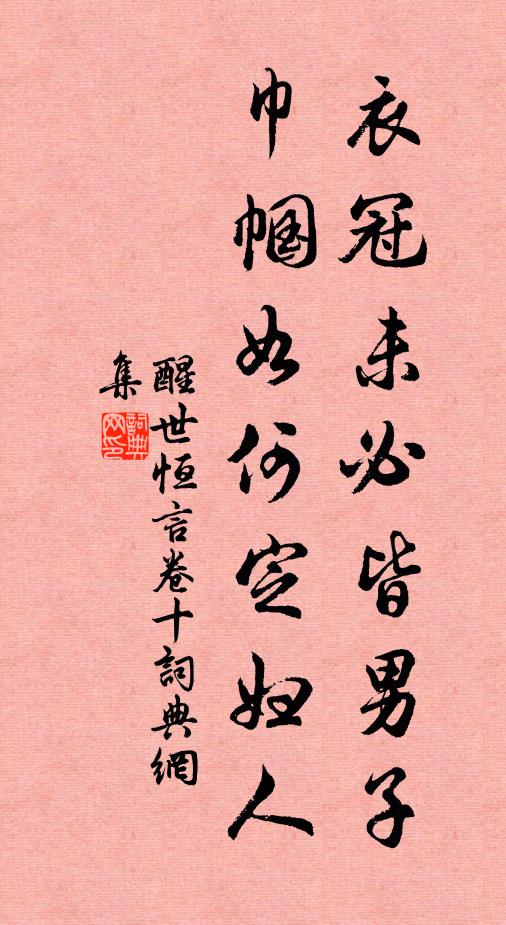 衣冠未必皆男子
巾帼如何定妇人
醒世恒言卷十詞典網
集
詞典
网印